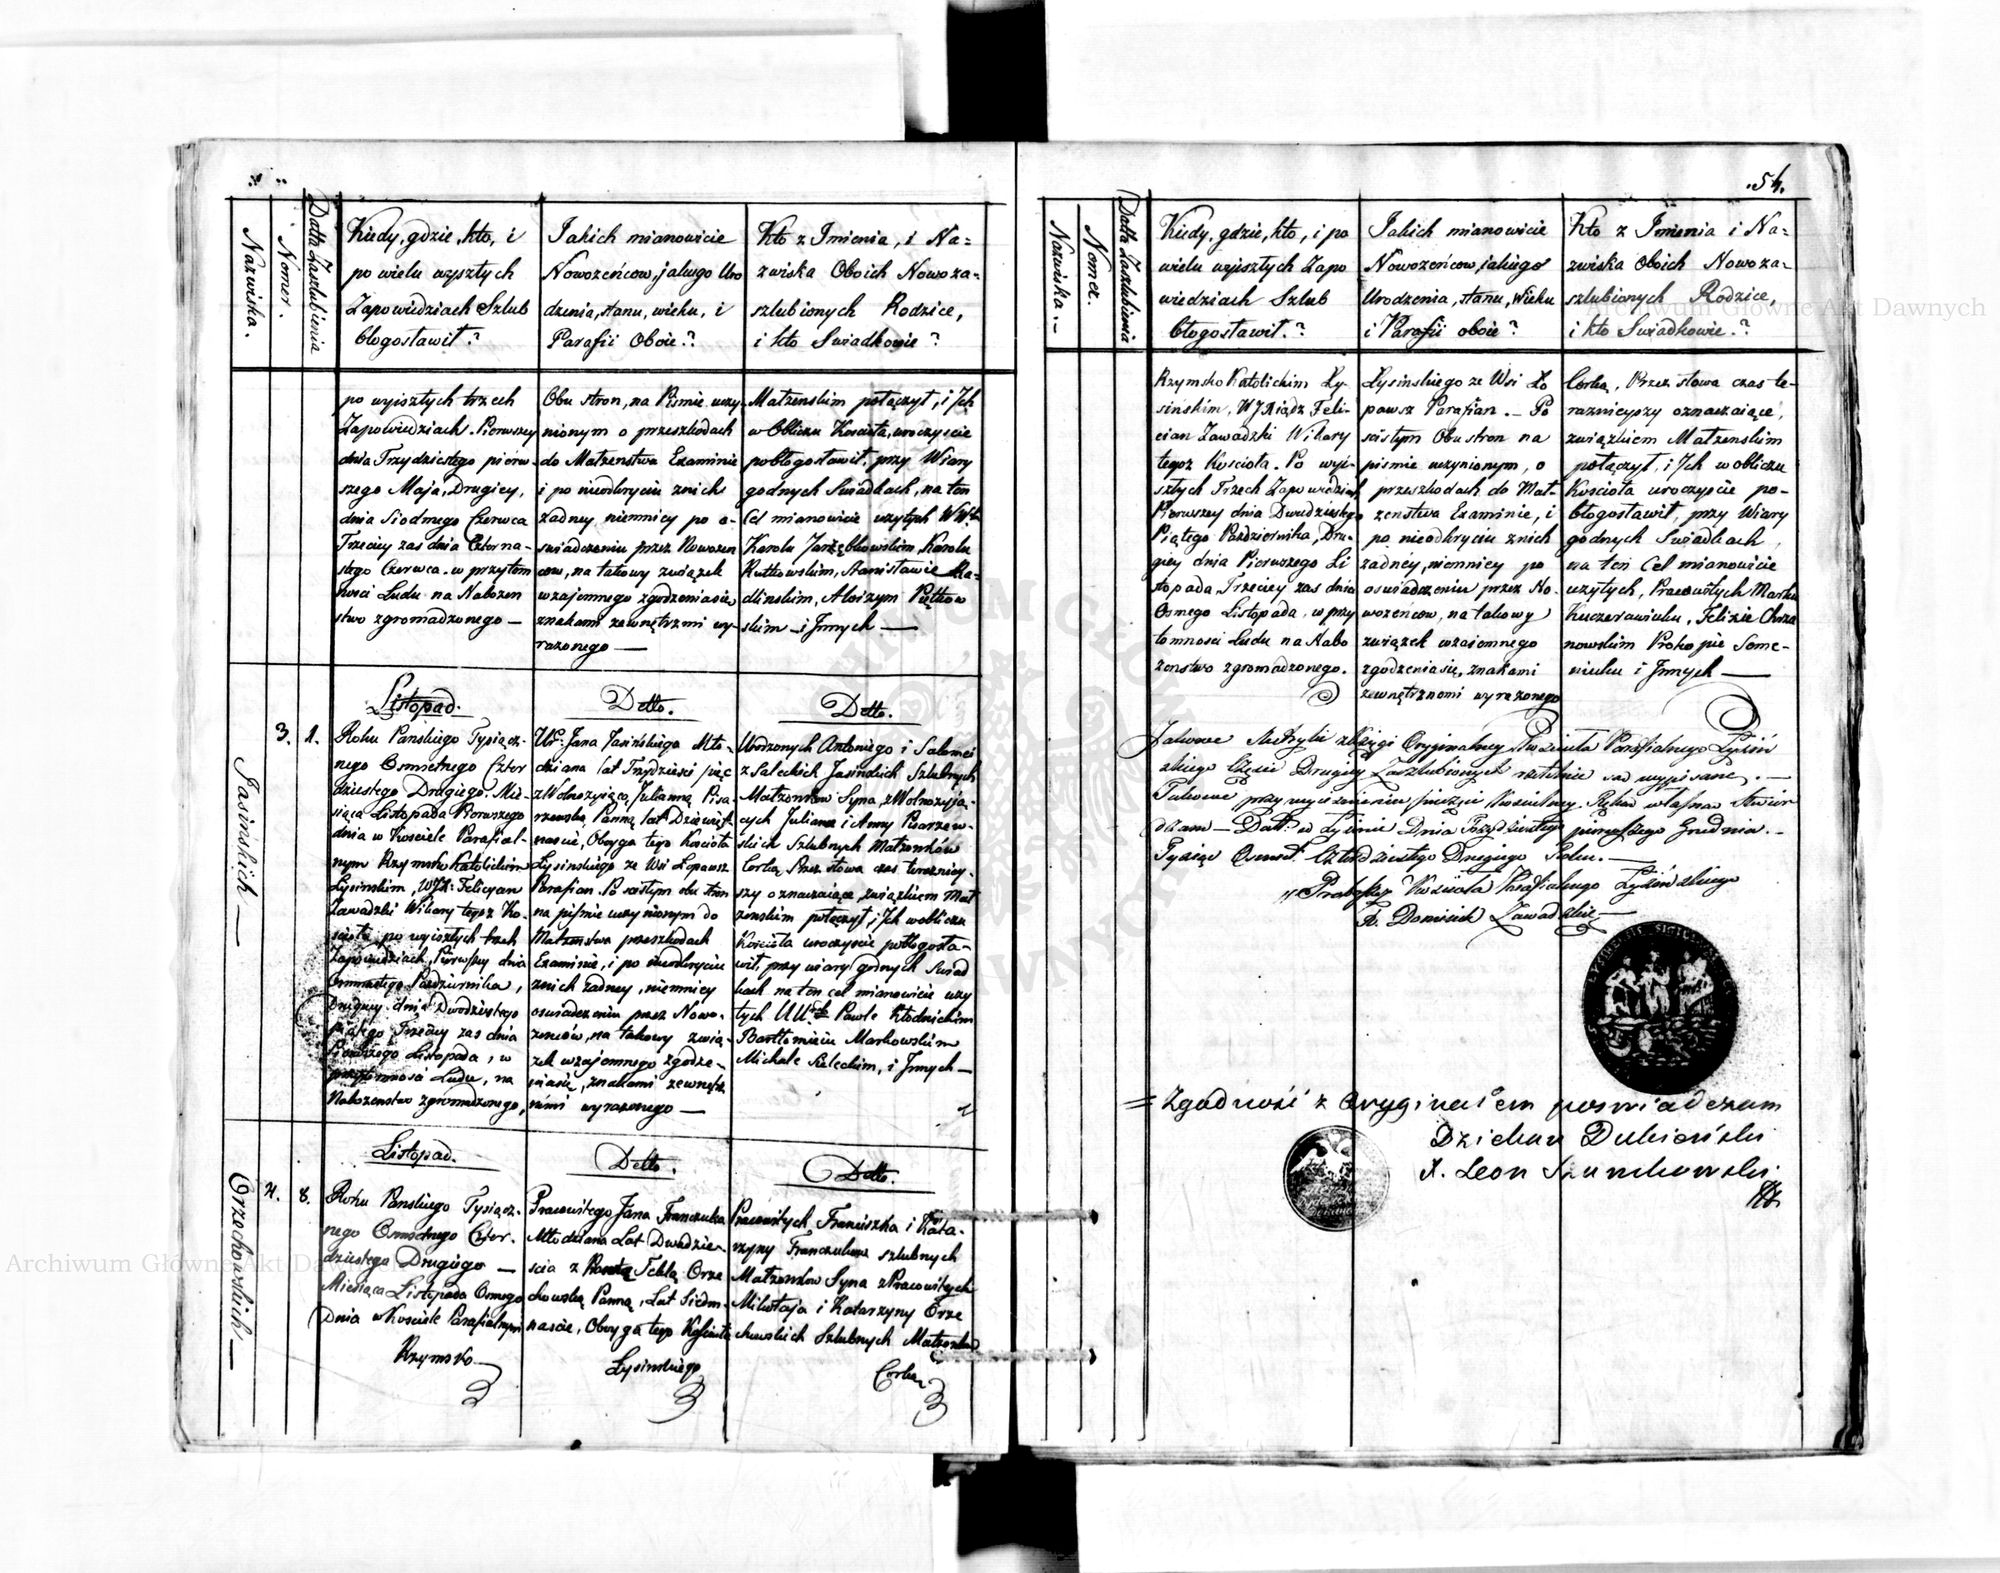 .54.
Nazwiska.
Nomer.
Datta Zaszlubienia
Kiedy, gdzie, kto, i
po wielu wyszłych
Zapowiedziach Szlub
błogosławił?
Jakich mianowicie
Nowożeńcow, jakiego Uro
dzenia, stanu, wieku, i
Parafii Oboie??
Kto z Imienia, i Na=
zwiska Oboich Nowoza=
szlubionych Rodzice,
i kto Swiadkowie?
po wyisztych trzech
Zapowiedziach. Pierwszey
dnia Trzydziestego pierw-
szego Maja, Drugiey,
dnia Siodmego Czerwca
Trzeciey zas dnia Czterna-
stego Czerwca. w przytom
ności Ludu na Nabożeń
stwo zgromadzonego —
Obu stron, na Piśmie uczy-
nionym o przeszkodach
do Małżenstwa Examinie
i po nieodkryciu znich
żadney niemniey po o-
swiadczeniu przez Nowożeń
cow, na takowy związek
wzajemnego zgodzeniasię
znakami zewnętrzmi wy-
rażonego —
Małżenskim połączył, i Ich
w Obliczu Kościoła, uroczyscie
pobłogosławił, przy Wiary
godnych Swiadkach, na ten
Cel mianowicie użytych
Karolu Jarzębkowskim, Karolu
Rutkowskim, Stanisławie Ra-
dlinskim, Aloizym Piętkow
skim i Innych —
Jasińskich —
3. 1.
Listopad.
Roku Panskiego Tysiącz-
nego Osmsetnego Czter
dziestego Drugiego. Mie-
siąca Listopada Pierwszego
dnia w Kościele Parafial-
nym Rzymsko Katolickim
Łysinskim, WJX: Felicyan
Zawadzki Wikary tegoż Ko-
scioła po wyisztych trzech
Zapowiedziach, Pierwszey dnia
Osmnastego Pazdziernika,
Drugiey dnia Dwudziestego
Piątego Trzeciey zas dnia
Pierwszego Listopada, w
przytomności Ludu, na
Nabożenstwo zgromadzonego,
Detto.
Ur: Jana Jasińskiego Mło-
dziana lat Trzydzieści pięć
z Wolnożyjącą Julianną Pisa-
rzewską Panną lat Dziewięt-
nascie, Oboyga tego Kościoła
Łysinskiego ze Wsi Łopawsz
Parafian. Po scisłym obu stron
na piśmie uczynionym do
Małżenstwa przeszkodach
Examinie, i po nieodkryciu
znich żadney, niemniey
oswiadczeniu przez Nowo-
żencow, na takowy zwią-
zek wzajemnego zgodze-
niasię, znakami zewnętrz
nimi wyrażonego —
Detto.
Urodzonych Antoniego i Salomei
z Saleckich Jasinskich Szlubnych
Małżonkow Syna, z Wolnożyją-
cych Juliana i Anny Pisarzew-
skich Szlubnych Małżonków
Corką, Przez słowa czas teraźniey-
szy oznaczaiące, związkiem Mał
żenskim połączył, i Ich w obliczu
Kościoła uroczyscie pobłogosła-
wił, przy wiary godnych Swiad
kach na ten cel mianowicie uży
tych Pawle Kłodnickim
Bartłomieiu Markowskim
Michale Saleckim, i Innych —
Orzechowskich —
4. 8.
Listopad.
Roku Panskiego Tysiącz-
nego Osmsetnego Czter-
dziestego Drugiego —
Miesiąca Listopada Osmego
Dnia w Kościele Parafialnym
Rzymsko
Detto.
Pracowitego Jana Franczuka
Młodziana Lat Dwadzie-
scia z Teklą Orze
chowską Panną, Lat Siedm-
nascie, Oboyga tego Kościoła
Łysinskiego
Detto.
Pracowitych Franciszka i Kata-
rzyny Franczukow szlubnych
Małżonkow Syna z Pracowitych
Mikołaja i Katarzyny Orze
chowskich Szlubnych Małżonkow
Corką
Nazwiska.
Nomer.
Datta Zaszlubienia
Kiedy, gdzie, kto, i po
wielu wyisztych Zapo
wiedziach Szlub
błogosławił.?
Jakich mianowicie
Nowożeńcow jakiego
Urodzenia, stanu, Wieku
i Parafii oboie?
Kto z Imienia i Na=
zwiska Oboich Nowoza-
szlubionych Rodzice,
i kto Swiadkowie.?
Rzymsko Katolickim Ły-
sińskim, WJXiądz Feli-
cian Zawadzki Wikary
tegoż Kościoła. Po wyi-
sztych Trzech Zapowiedziach
Pierwszey dnia Dwudziestego
Piątego Pazdziernika, Dru-
giey dnia Pierwszego Li
stopada, Trzeciey zas dnia
Osmego Listopada, w przy
tomności Ludu na Nabo
żenstwo zgromadzonego.
Łysinskiego ze Wsi Ło
pawsz Parafian. — Po
scisłym Obu stron na
piśmie uczynionym, o
przeszkodach do Mał-
żenstwa Examinie, i
po nieodkryciu znich
żadney, niemniey po
oswiadczeniu przez No-
wożeńcow, na takowy
związek wzaiemnego
zgodzenia się, znakami
zewnętrznemi wyrażonego
Corką, Przez słowa czas te-
raźnieyszy oznaczaiące,
związkiem Małżenskim
połączył, i Ich w obliczu
Kościoła uroczyscie po-
błogosławił, przy Wiary
godnych Swiadkach,
na ten Cel mianowicie
użytych, Pracowitych Marku
Kuczerawiuku, Felixie Chrza
nowskim Prokopie Seme-
niuku i Innych —
Jakowe Metryki z Xięgi Oryginalney Kościoła Parafialnego Łysiń
skiego Części Drugiey Zaszlubionych rzetelnie są wypisane. —
Takowe przy wycisnieniu pieczęci Kościelney Ręką własną stwier
dzam — Datt. w Łysinie Dnia Trzydziestego pierwszego Grudnia. —
Tysiąc Osmset Czterdziestego Drugiego Roku. —
Proboszcz Kościoła Parafialnego Łysińskiego
X. Dominik Zawadzki —
= Zgodność z Oryginałem poswiadczam
Dziekan Dubieński
X. Leon Szunkowski
Archiwum Główne Akt Dawnych
Archiwum Główne Akt Dawnych